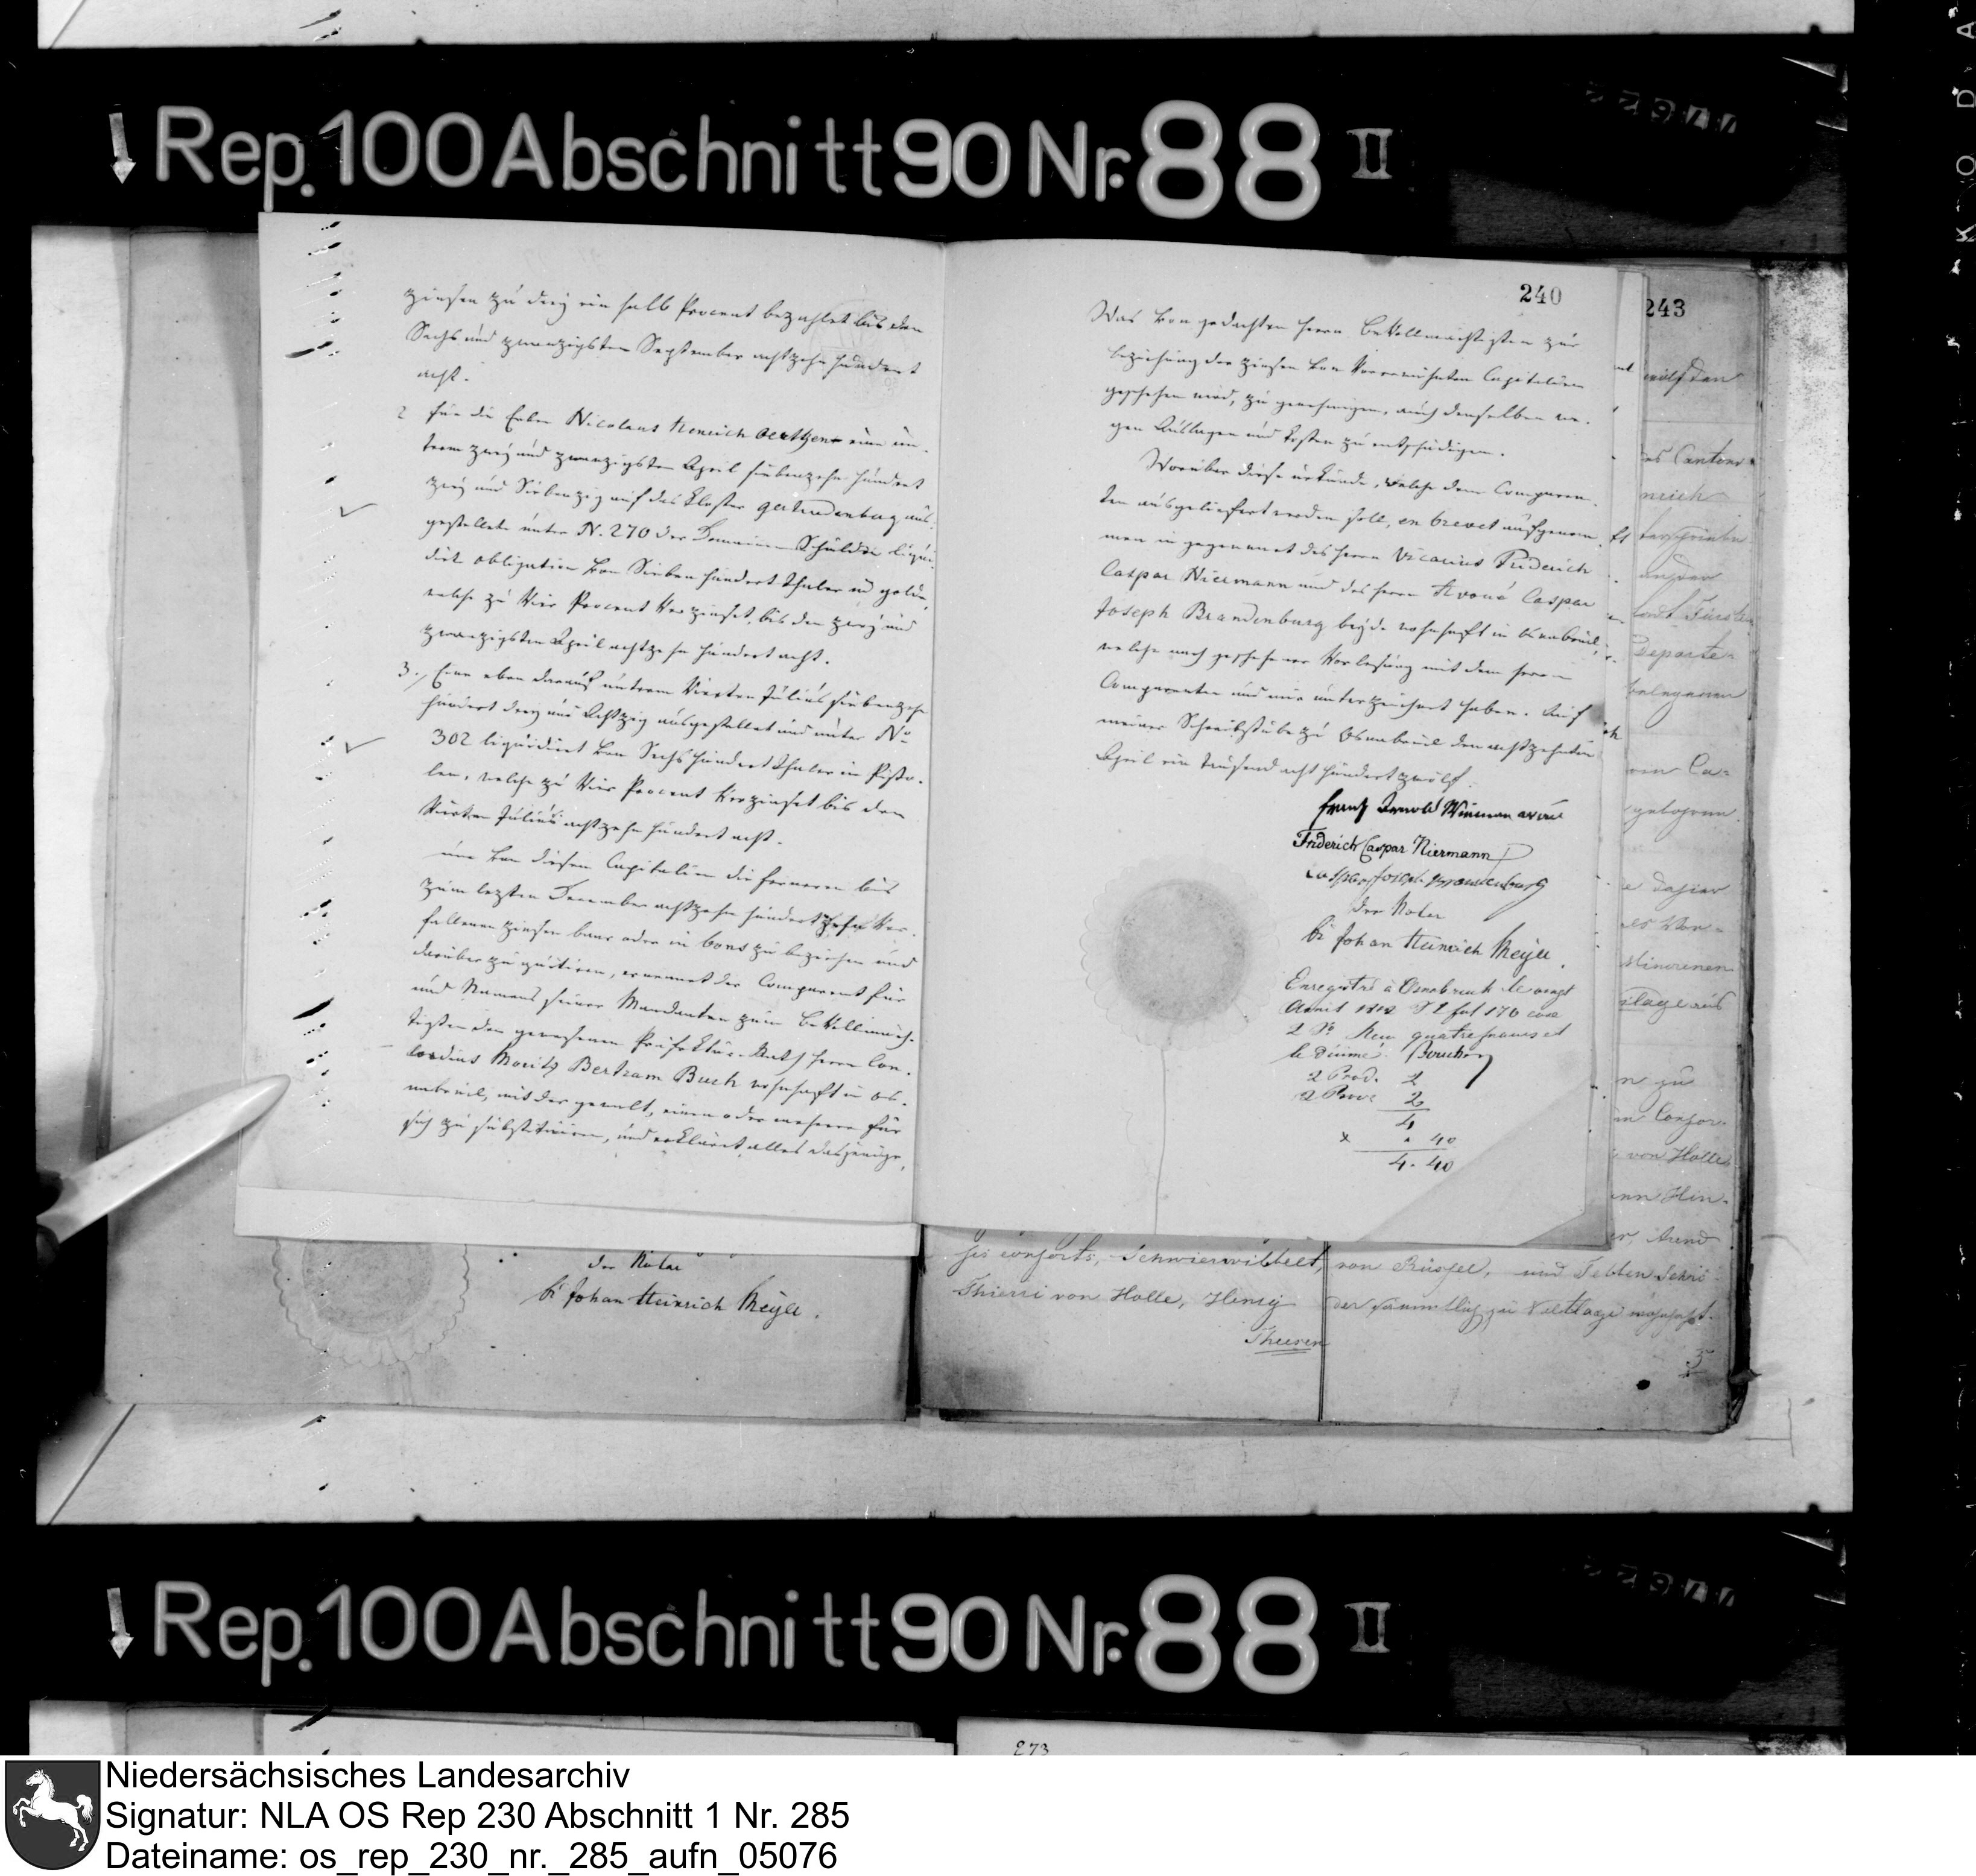 Rep. 100 Abschnitt 90 Nr. 88 II
zinsen zu drey ein halb Procent bezahlet bis den
Sechs und zwanzigsten September achtzehn hundert
acht.
2 für die Erben Nicolaus Henrich eine un-
term zwey und zwanzigsten April siebenzehn hundert
zwey und Siebenzig auf das Kloster Gertrudenberg aus-
gestellete unter N. 270 der Domainen Schulden liqui-
dirte obligation von Sieben hundert Thaler in golde,
welche zu Vier Procent Verzinset, bis den zwey und
zwanzigsten April achtzehn hundert acht.
3., Eine eben daraus unterm Vierten Julius siebenzehn
hundert drey und Achtzig ausgestellet und unter No
302 liquidirt von Sechs hundert Thaler in Pisto-
len, welche zu Vier Procent Verzinset bis den
Vierten Julius achtzehn hundert acht.
um von diesen Capitalien die ferneren bis
zum lezten December achtzehn hundert zehn Ver-
fallenen zinsen baar oder in bons zu beziehen und
darüber zu quitiren, ernennet der Comparent für
und Namens seiner Mandanten zum Bevollmäch-
tigten den gewesenen Präfektur-Rath Herrn Con-
Moritz Bertram Buch wohnhaft in Os-
nabrück, mit der gewalt, einen oder mehrere für
sich zu substituiren, und erkläret alles dasjenige,
240
Was von gedachten Herrn Bevollmächtigten zur
beziehung der zinsen von Vorerwähnten Capitalien
geschehen wird, zu genehmigen, auch denselben we-
gen Auslagen und Kosten zu entschädigen.
Worüber diese urkunde, welche dem Comparen-
ten ausgeliefert werden soll, en brevet aufgenom-
men in gegenwart des Herrn Vicarius Friderich
Caspar Niermann und des Herrn Avoué Caspar
Joseph Brandenburg beyde wohnhaft in Osnabrück,
welche nach geschehener Vorlesung mit dem Herrn
Comparenten und mir unterzeichnet haben. Auf
meiner Schreibstube zu Osnabrück den achtzehnten
April ein tausend acht hundert zwölf.
Franz Arnold avoué
Friderich Caspar Niermann
Caspar Joseph Brandenburg
der Notar
Johan Heinrich Meyer.
Enregistré à Osnabruck le vingt
Avril 1812 fol 170
2 Reçu quatre francs et
le dixième.
2 Prod. 2
2 2
4
40
4. 40
243
zwölf den
des Cantons
Departe-
von Holle
der Notar
Johan Heinrich Meyer.
consorts,
Thierri von Holle, Henry
von Rüssel, und
der sämmtlich zu wohnhaft.
Rep. 100 Abschnitt 90 Nr. 88 II
273
Niedersächsisches Landesarchiv
Signatur: NLA OS Rep 230 Abschnitt 1 Nr. 285
Dateiname: os_rep_230_nr._285_aufn_05076